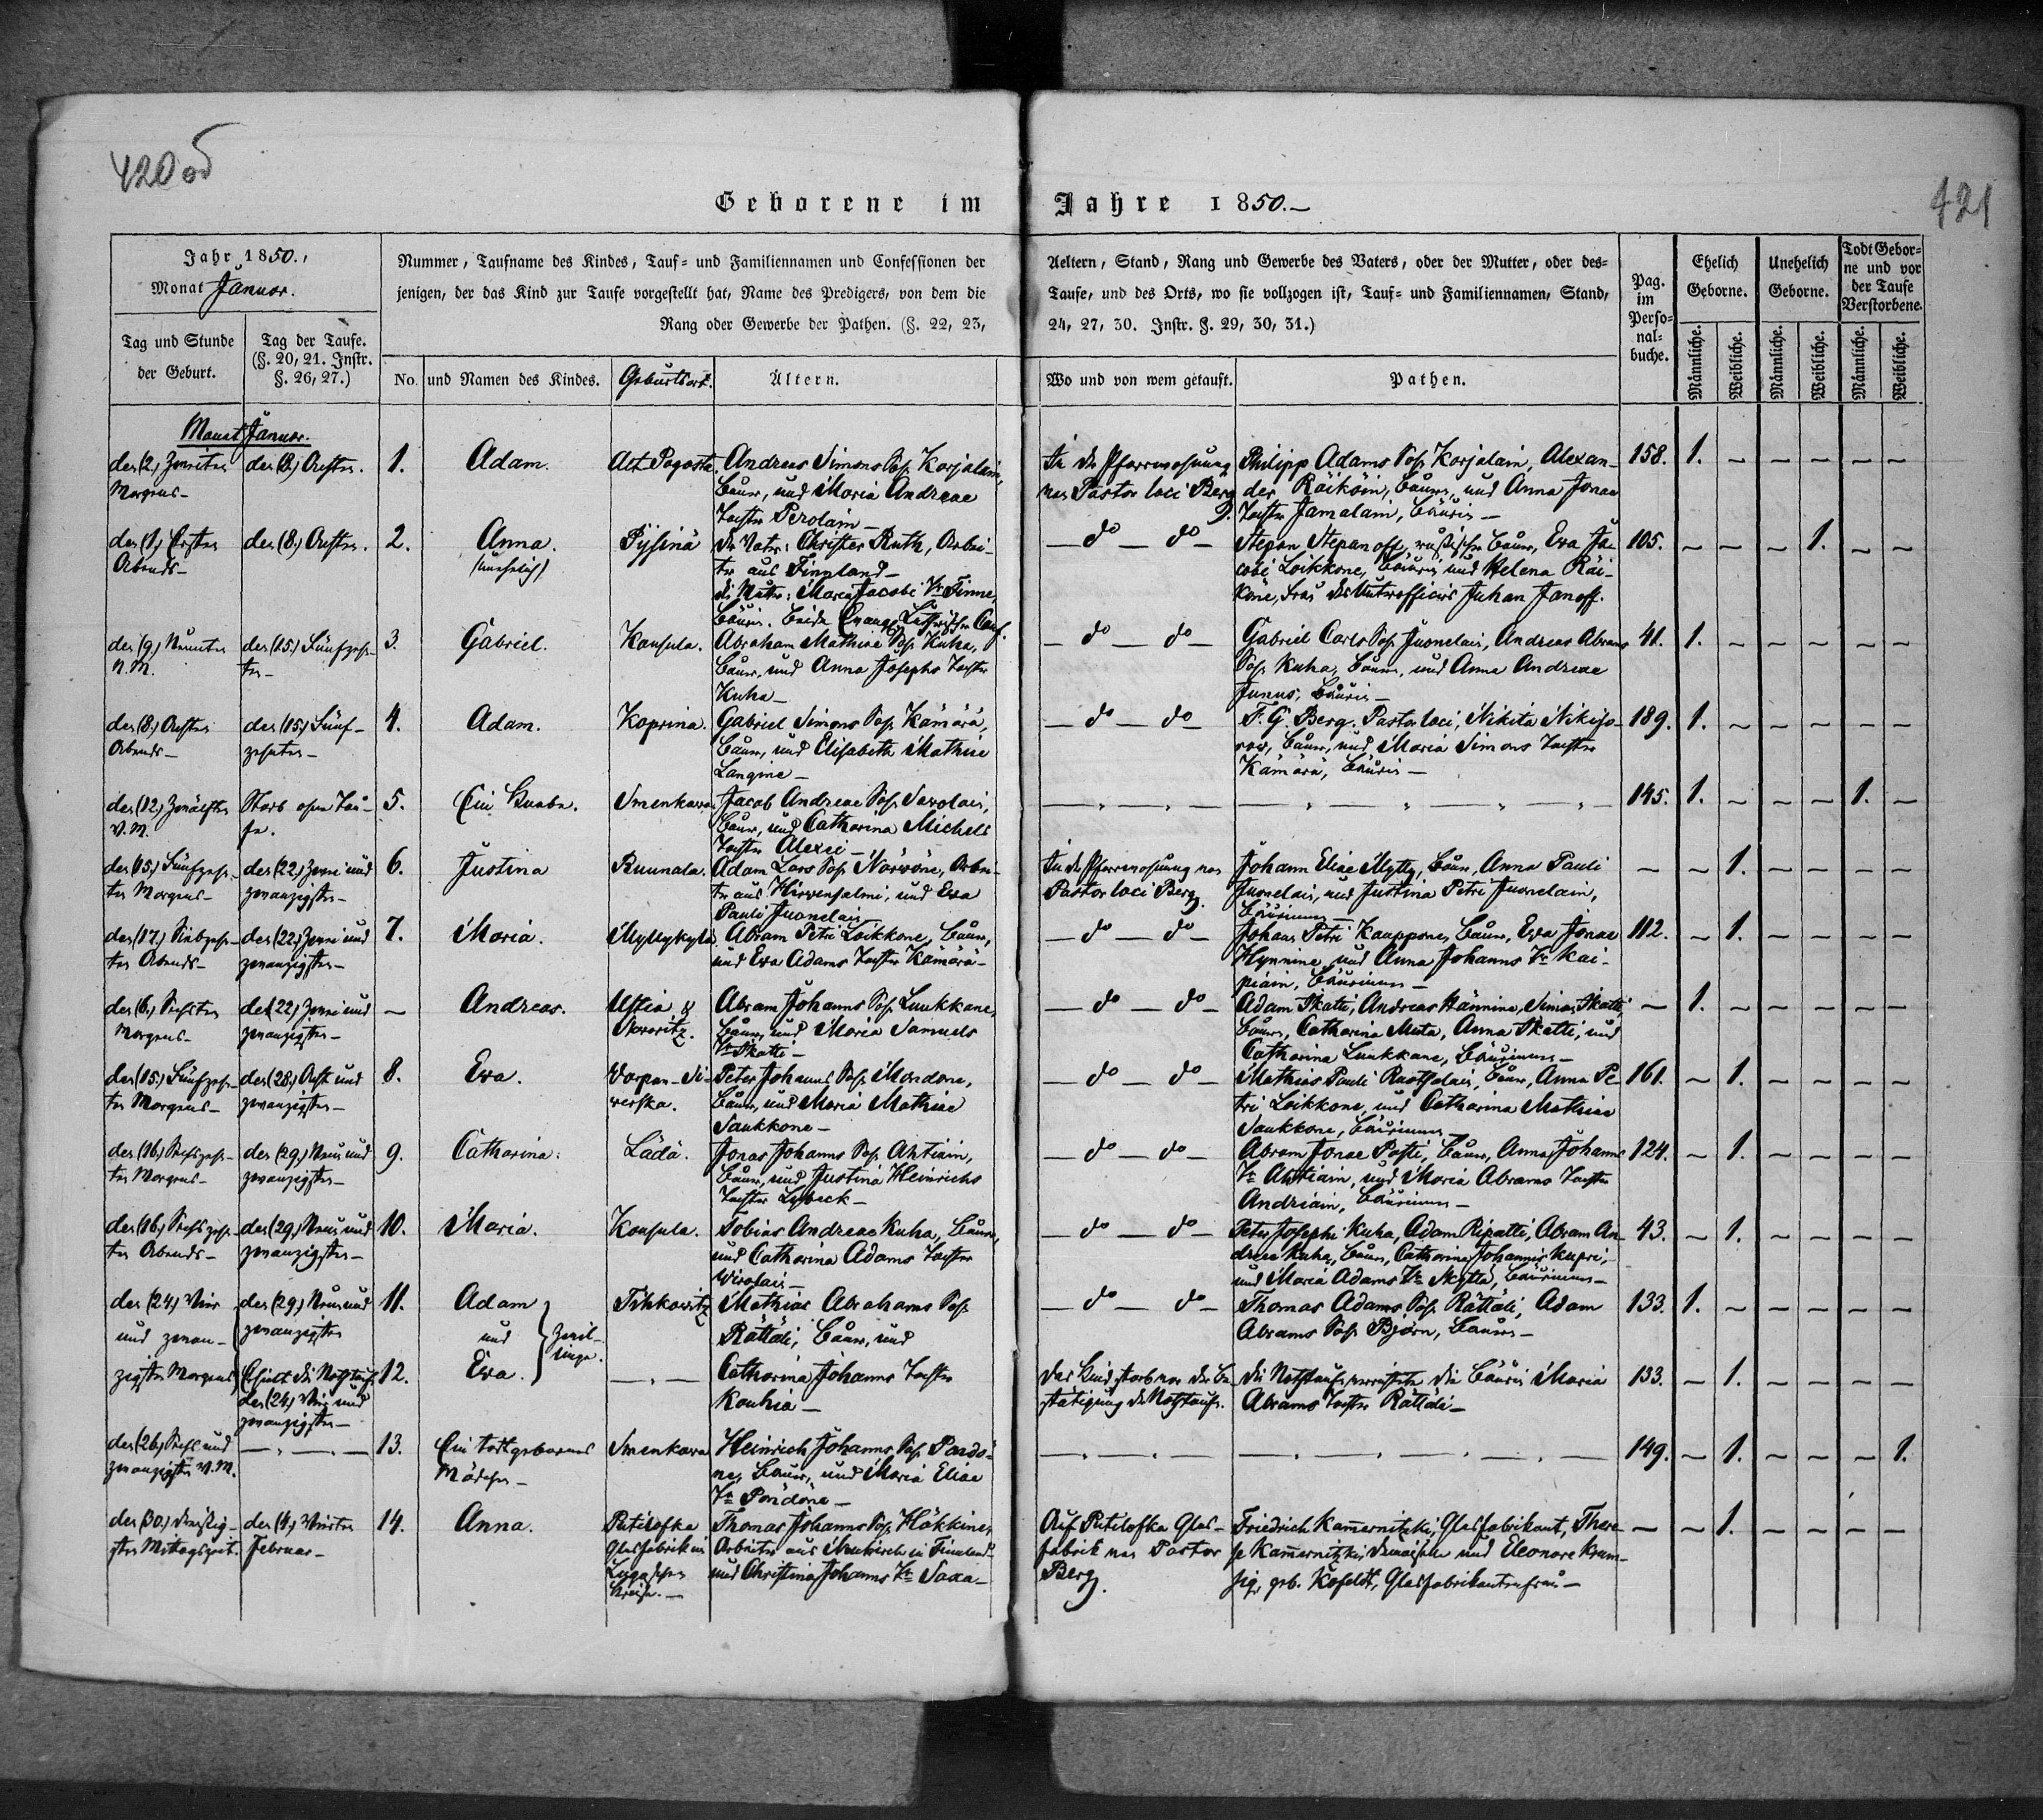 420 05
421
Geborene im Jahre 1850.—
Jahr 1850.,
Monat Januar.
Nummer, Taufname des Kindes, Tauf- und Familiennamen und Confessionen der
jenigen, der das Kind zur Taufe vorgestellt hat, Name des Predigers, von dem die
Rang oder Gewerbe der Pathen. (§. 22, 23,
Aeltern, Stand, Rang und Gewerbe des Vaters, oder der Mutter, oder des-
Taufe, und des Orts, wo sie vollzogen ist, Tauf- und Familiennamen, Stand,
24, 27, 30. Instr. §. 29, 30, 31.)
Pag.
im
Perso-
nal-
buche.
Ehelich
Geborne.
Unehelich
Geborne.
Todt Gebor-
ne und vor
der Taufe
Verstorbene.
Tag und Stunde
der Geburt.
Tag der Taufe.
(§. 20, 21. Instr.
§. 26, 27.)
No. und Namen des Kindes. Geburtsort. Ältern. Wo und von wem getauft. Pathen.
Männliche. Weibliche. Männliche. Weibliche. Männliche. Weibliche.
Monat Januar.
den (2.) Zweiten
Morgens—
den (8.) Achten.
1. Adam.
Alt Pogosta.
Andreas Simons Soh. Korjalain,
Bauer, und Maria Andreae
Tochter Perolain—
In der Pfarrwohnung
von Pastor loci Berg.
Philipp Adams Soh. Korjalain, Alexan-
der Räiköin, Bauern, und Anna Jonae
Tochter Jamalain, Bäurin—
158. 1. – – – – –
den (1.) Ersten
Abends—
den (8.) Achten.
2. Anna.
(unehelich)
Pysinä
Der Vater: Christer Ruth, Arbei-
ter aus Finnland—
die Mutter: Maria Jacobi Tr Finne,
Bäurin. Beide Evang. Lutherischer Conf.
— do — do —
Stepan Stepanoff, russischer Bauer, Eva Ja-
cobi Loikkone, Bäurin und Helena Räi-
köne, Frau des Unterofficiers Juhan Janoff.
105. – – – 1. – –
den (9.) Neunten
N.M.
den (15.) Fünfzehn-
ten—
3. Gabriel.
Konsula.
Abraham Mathiae Soh. Kuha,
Bauer, und Anna Josephs Tochter
Kuha—
— do — do —
Gabriel Carls Soh. Juonelain, Andreas Abrams
Soh. Kuha, Bauern, und Anna Andreae
Junus, Bäurin—
41. 1. – – – – –
den (8.) Achten
Abends—
den (15.) Fünf-
zehnten—
4. Adam.
Koprina.
Gabriel Simons Soh. Kämärä,
Bauer, und Elisabeth Mathiae
Langine—
— do — do —
F. G. Berg. Pastor loci, Nikita Nikifo-
row, Bauer, und Maria Simons Tochter
Kämärä, Bäurin—
189. 1. – – – – –
den (12.) Zwölften
V.M.
Starb ohne Tau-
fe.
5. Ein Knabe.
Smenkowa
Jacob Andreae Soh. Savolain,
Bauer, und Catharina Michels
Tochter Alexei—
145. 1. – – – 1. –
den (15.) Fünfzehn-
ten Morgens—
den (22.) Zwei und
zwanzigsten—
6. Justina
Ruunala.
Adam Lars Soh. Närvöne, Arbei-
ter aus Hirvensalmi, und Eva
Pauli Juonelain—
In der Pfarrwohnung von
Pastor loci Berg.
Johann Eliae Mylly, Bauer, Anna Pauli
Juonelain, und Justina Petri Juonelain,
Bäurinnen—
– – 1. – – – –
den (17.) Siebzehn-
ten Abends—
den (22.) Zwei und
zwanzigsten—
7. Maria.
Myllykylä.
Abram Petri Loikkone, Bauer,
und Eva Adams Tochter Kämärä—
— do — do —
Johann Petri Kauppone, Bauer, Eva Jonae
Hynnine und Anna Johanns Tr Kai-
piain, Bäurinnen—
112. – 1. – – – –
den (6.) Sechsten
Morgens—
den (22.) Zwei und
zwanzigsten—
— Andreas.
Abram Johanns Soh. Luukkane,
Bauer, und Maria Samuels
Tr Skatti—
— do — do —
Adam Skatti, Andreas Hännine, Simon Skatti
Bauern, Catharina Muta, Anna Skatti, und
Catharina Luukkane, Bäurinnen—
– 1. – – – – –
den (15.) Fünfzehn-
ten Morgens—
den (28.) Acht und
zwanzigsten—
8. Eva.
Worpen-Si-
werska.
Peter Johanns Soh. Mondone,
Bauer, und Maria Mathiae
Saukkone—
— do — do —
Mathias Pauli Ruotsalain, Bauer, Anna Pe-
tri Loikkone, und Catharina Mathiae
Saukkone, Bäurinnen—
161. – 1. – – – –
den (16.) Sechszehn-
ten Morgens—
den (29.) Neun und
zwanzigsten—
9. Catharina.
Lädä.
Jonas Johanns Soh. Ahtiain,
Bauer, und Justina Heinrichs
Tochter Lybeck—
— do — do —
Abram Jonae Posti, Bauer, Anna Johanns
Tr Ahtiain, und Maria Abrams Tochter
Andriain, Bäurinnen—
124. – 1. – – – –
den (16.) Sechszehn-
ten Abends—
den (29.) Neun und
zwanzigsten—
10. Maria.
Konsula.
Tobias Andreae Kuha, Bauer,
und Catharina Adams Tochter
Wirolain—
— do — do —
Peter Josephi Kuha, Adam Ripatti, Abram An-
dreae Kuha, Bauern, Catharina Johannis Kupri,
und Maria Adams Tr Skyttä, Bäurinnen—
43. – 1. – – – –
den (24.) Vier
und zwan-
zigsten Morgens
den (29.) Neun und
zwanzigsten
11. Adam
und
Zwil-
linge.
Tihkowitz
Mathias Abrahams Soh.
Rättäli, Bauer, und
— do — do —
Thomas Adams Soh. Rättäli, Adam
Abrams Soh. Björn, Bauern—
133. 1. – – – – –
Erhielt die Nothtaufe
den (24.) Vier und
zwanzigsten—
12. Eva.
Catharina Johanns Tochter
Kauhia—
Das Kind starb vor der Be-
stätigung der Nothtaufe.
Die Nothtaufe verrichtete die Bäurin Maria
Abrams Tochter Rättäli—
133. – 1. – – – –
den (26.) Sechs und
zwanzigsten V.M.
13. Ein todtgebornes
Mädchen—
Smenkowa
Heinrich Johanns Soh. Pöndö-
ne, Bauer, und Maria Eliae
Tr Pöndöne—
149. – 1. – – – 1.
den (30.) Dreißig-
sten Mittagszeit.
den (4.) Vierten
Februar—
14. Anna.
Putilofka
Glasfabrik im
Lugaschen
Kreise.—
Thomas Johanns Soh. Häkkine,
Arbeiter aus Neukirch in Finnland
und Christina Johanns Tr Saxa—
Auf Putilofka Glas-
fabrik von Pastor
Berg.
Friedrich Kamernitzki, Glasfabrikant, There-
se Kamernitzki, Demoiselle und Eleonore Kram-
sig, geb. Kofeldt, Glasfabrikantenfrau—
– – 1. – – – –